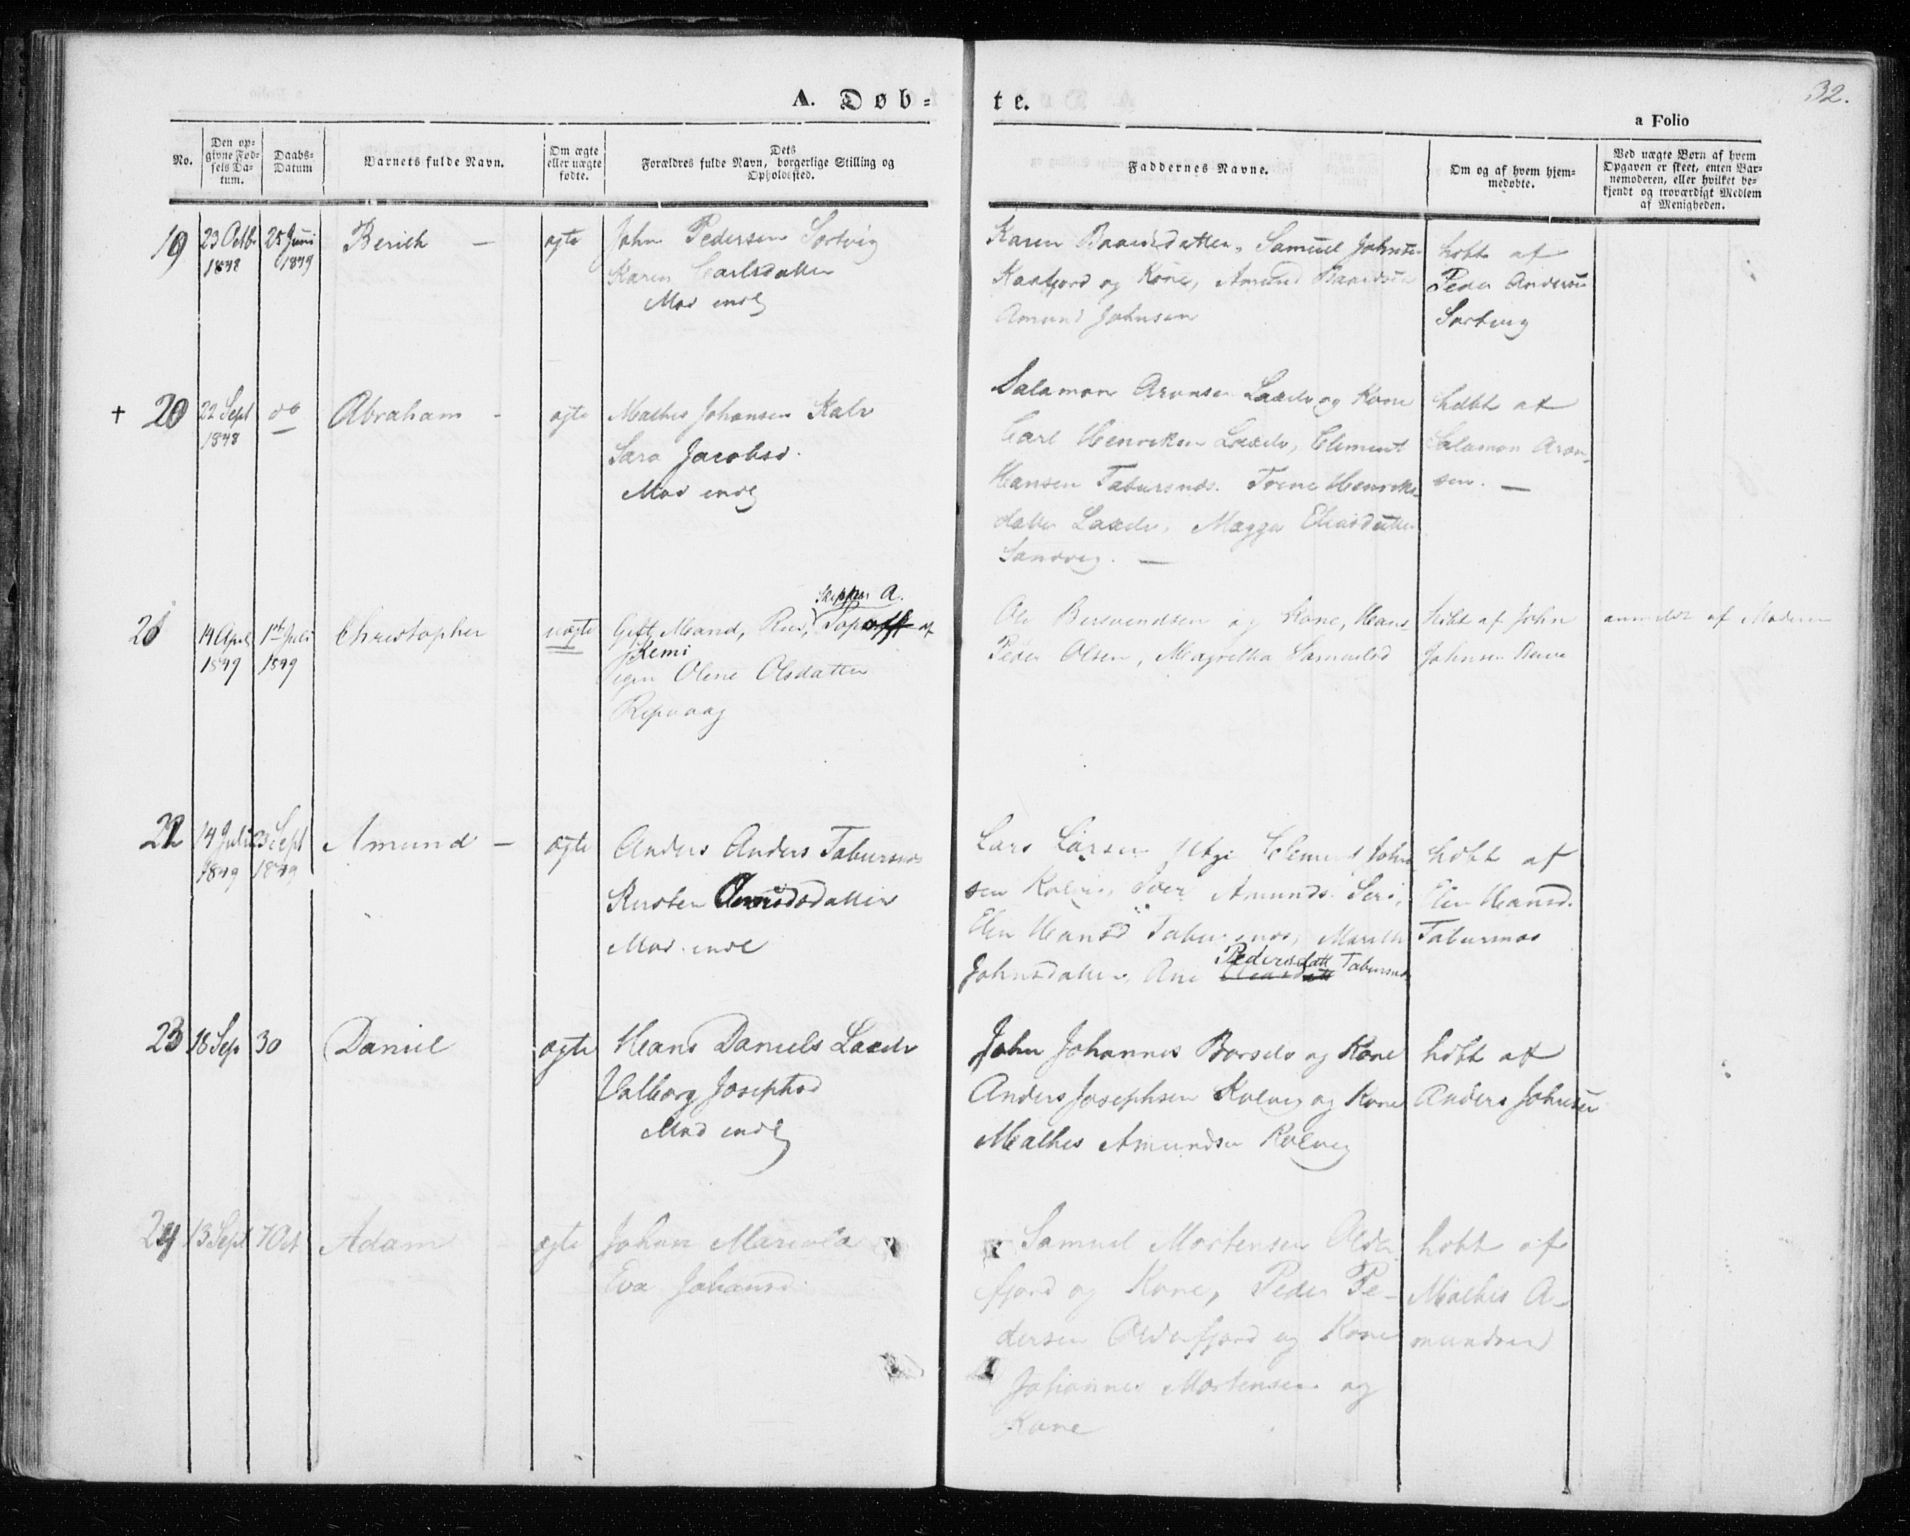 32.
A. Døb-
te.
a Folio
No.
Den op-
givne Fød-
sels Da-
tum.
Daabs-
Datum
Barnets fulde Navn.
Om ægte
eller uægte
fødte.
Dets
Forældres fulde Navn, borgerlige Stilling og
Opholdssted.
Faddernes Navne.
Om og af hvem hjem-
medøbte.
Ved uægte Børn af hvem
Opgaven er skeet, enten Bar-
nemoderen, eller hvilket be-
kjendt og troværdigt Medlem
af Menigheden.
19
23 Octbr
1848
25 Juni
1849
Berith —
ægte
John Pedersen Sortvig
Karen Carlsdatter
Mod indl
Karen Baardsdatter, Samuel Johns
Kaafjord og Kone, Amund
Amund Johnsen
hdbt af
Peder Andersen
Sortvig
+ 20
22 Sept
1848
do
Abraham -
ægte
Mathis Johansen Kalv
Sara Jacobsd.
Mod indl
Salamon Aronsen Laxelv og Kone
Carl Henriksen Laxelv, Clement
Hansen Tabursnes. Trine Henriks-
datter Laxelv, Magga Eliasdatter
Sandvig. —
hdbt af
Salamon Aron-
sen. —
21
14 April
1849
1ste Juli
1849
Christopher
uægte
Skipper A.
Gift Mand, Rus, Popoff af
Kemi
Pigen Olene Olsdatter
Repvaag
Ole og Kone, Hans
Peder Olsen, Magretha Samuelsd
hdbt af John
Johnsen
anmeldt af Moderen
22
14 Juli
1849
23 Sept
1849
Amund —
ægte
Anders Anders Tabursnes
Kirsten datter
Mod. indl
Lars Larsen Clement John
sen Iver Amunds
Elen Hansd Tabursnes, Marith
Pedersdatt
Johnsdatter, Ane Tabursnes
hdbt af
Elen Hansd.
Tabursnes
23
18 Sep
30
Daniel
ægte
Hans Daniels Laxelv
Valborg Josephsd
Mod indl
John Johannes Børselv og Kone
Anders Josephsen Kolvig og Kone
Mathis Amundsen Kolvig
hdbt af
Anders Johnsen
24
13 Sept
7 Oct
Adam
ægte
Johan
Eva Johansd.
Samuel Mortensen Olde
fjord og Kone, Peder Pe-
dersen Oldefjord og Kone
Johannes Mortensen og
Kone
hdbt af
Mathis A-
mundsen